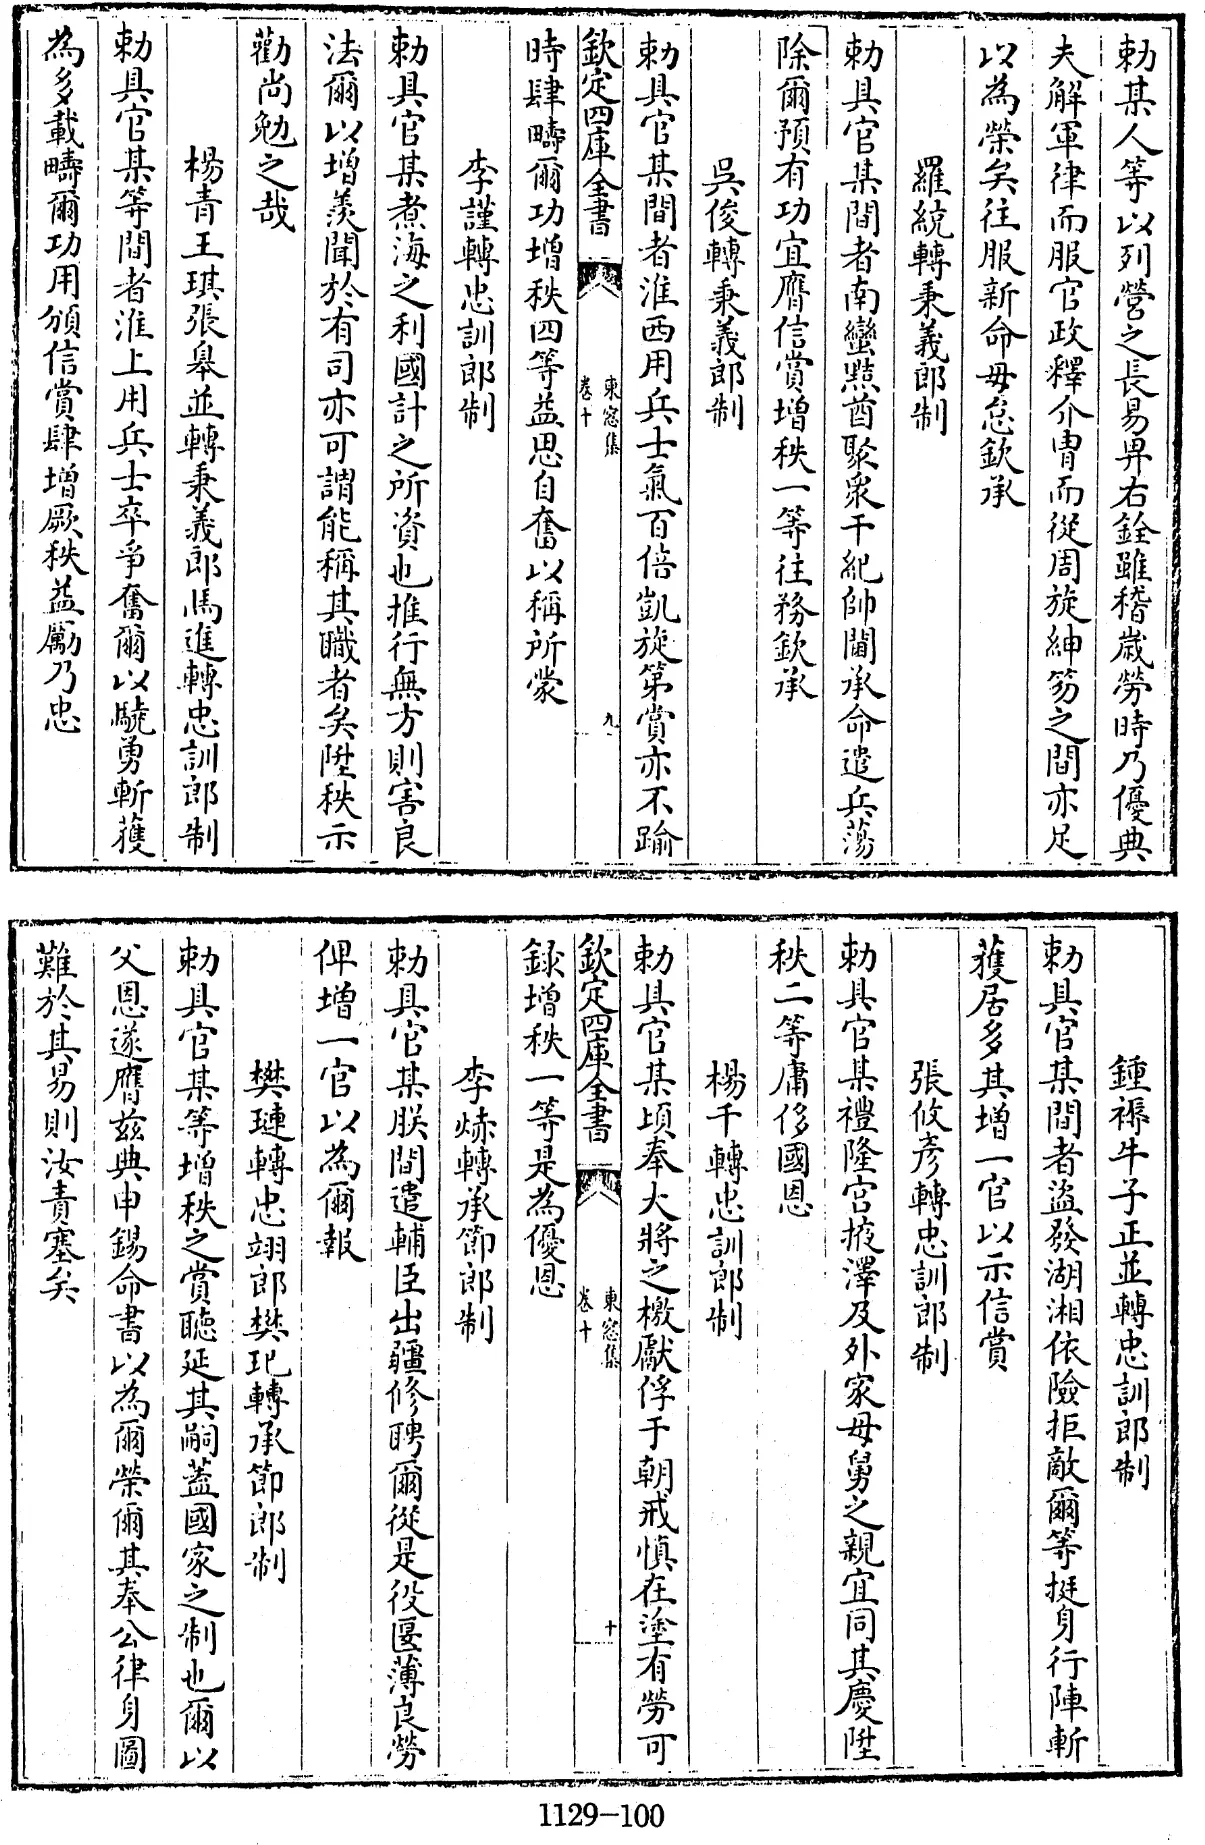 勅某人等以列營之長易畀右銓雖稽歲勞時乃優典
夫解軍律而服官政釋介胄而從周旋紳笏之間亦足
以為榮矣往服新命毋怠欽承
羅統轉秉義郎制
勅具官某間者南蠻黠酋聚衆干紀帥閫承命遣兵蕩
除爾預有功宜膺信賞增秩一等往務欽承
吳俊轉秉義郎制
勅具官某間者淮西用兵士氣百倍凱旋第賞亦不踰
欽定四庫全書
東窓集
卷十
九
時肆疇爾功增秩四等益思自奮以稱所蒙
李謹轉忠訓郎制
勅具官某煮海之利國計之所資也推行無方則害良
法爾以增羨聞於有司亦可謂能稱其職者矣陞秩示
勸尚勉之哉
楊青王琪張皋並轉秉義郎馮進轉忠訓郎制
勅具官某等間者淮上用兵士卒爭奮爾以驍勇斬獲
為多載疇爾功用頒信賞肆增厥秩益勵乃忠
鍾褥牛子正並轉忠訓郎制
勅具官某間者盜發湖湘依險拒敵爾等挺身行陣斬
獲居多其增一官以示信賞
張攸彦轉忠訓郎制
勅具官某禮隆宫掖澤及外家母舅之親宜同其慶陞
秩二等庸侈國恩
楊千轉忠訓郎制
勅具官某頃奉大將之檄獻俘于朝戒慎在塗有勞可
欽定四庫全書
東窓集
卷十
十
録增秩一等是為優恩
李焃轉承節郎制
勅具官某朕間遣輔臣出疆修聘爾從是役匽薄良勞
俾增一官以為爾報
樊璉轉忠翊郎樊玘轉承節郎制
勅具官某等增秩之賞聽延其嗣葢國家之制也爾以
父恩遂膺兹典申錫命書以為爾榮爾其奉公律身圖
難於其易則汝責塞矣
1129-100